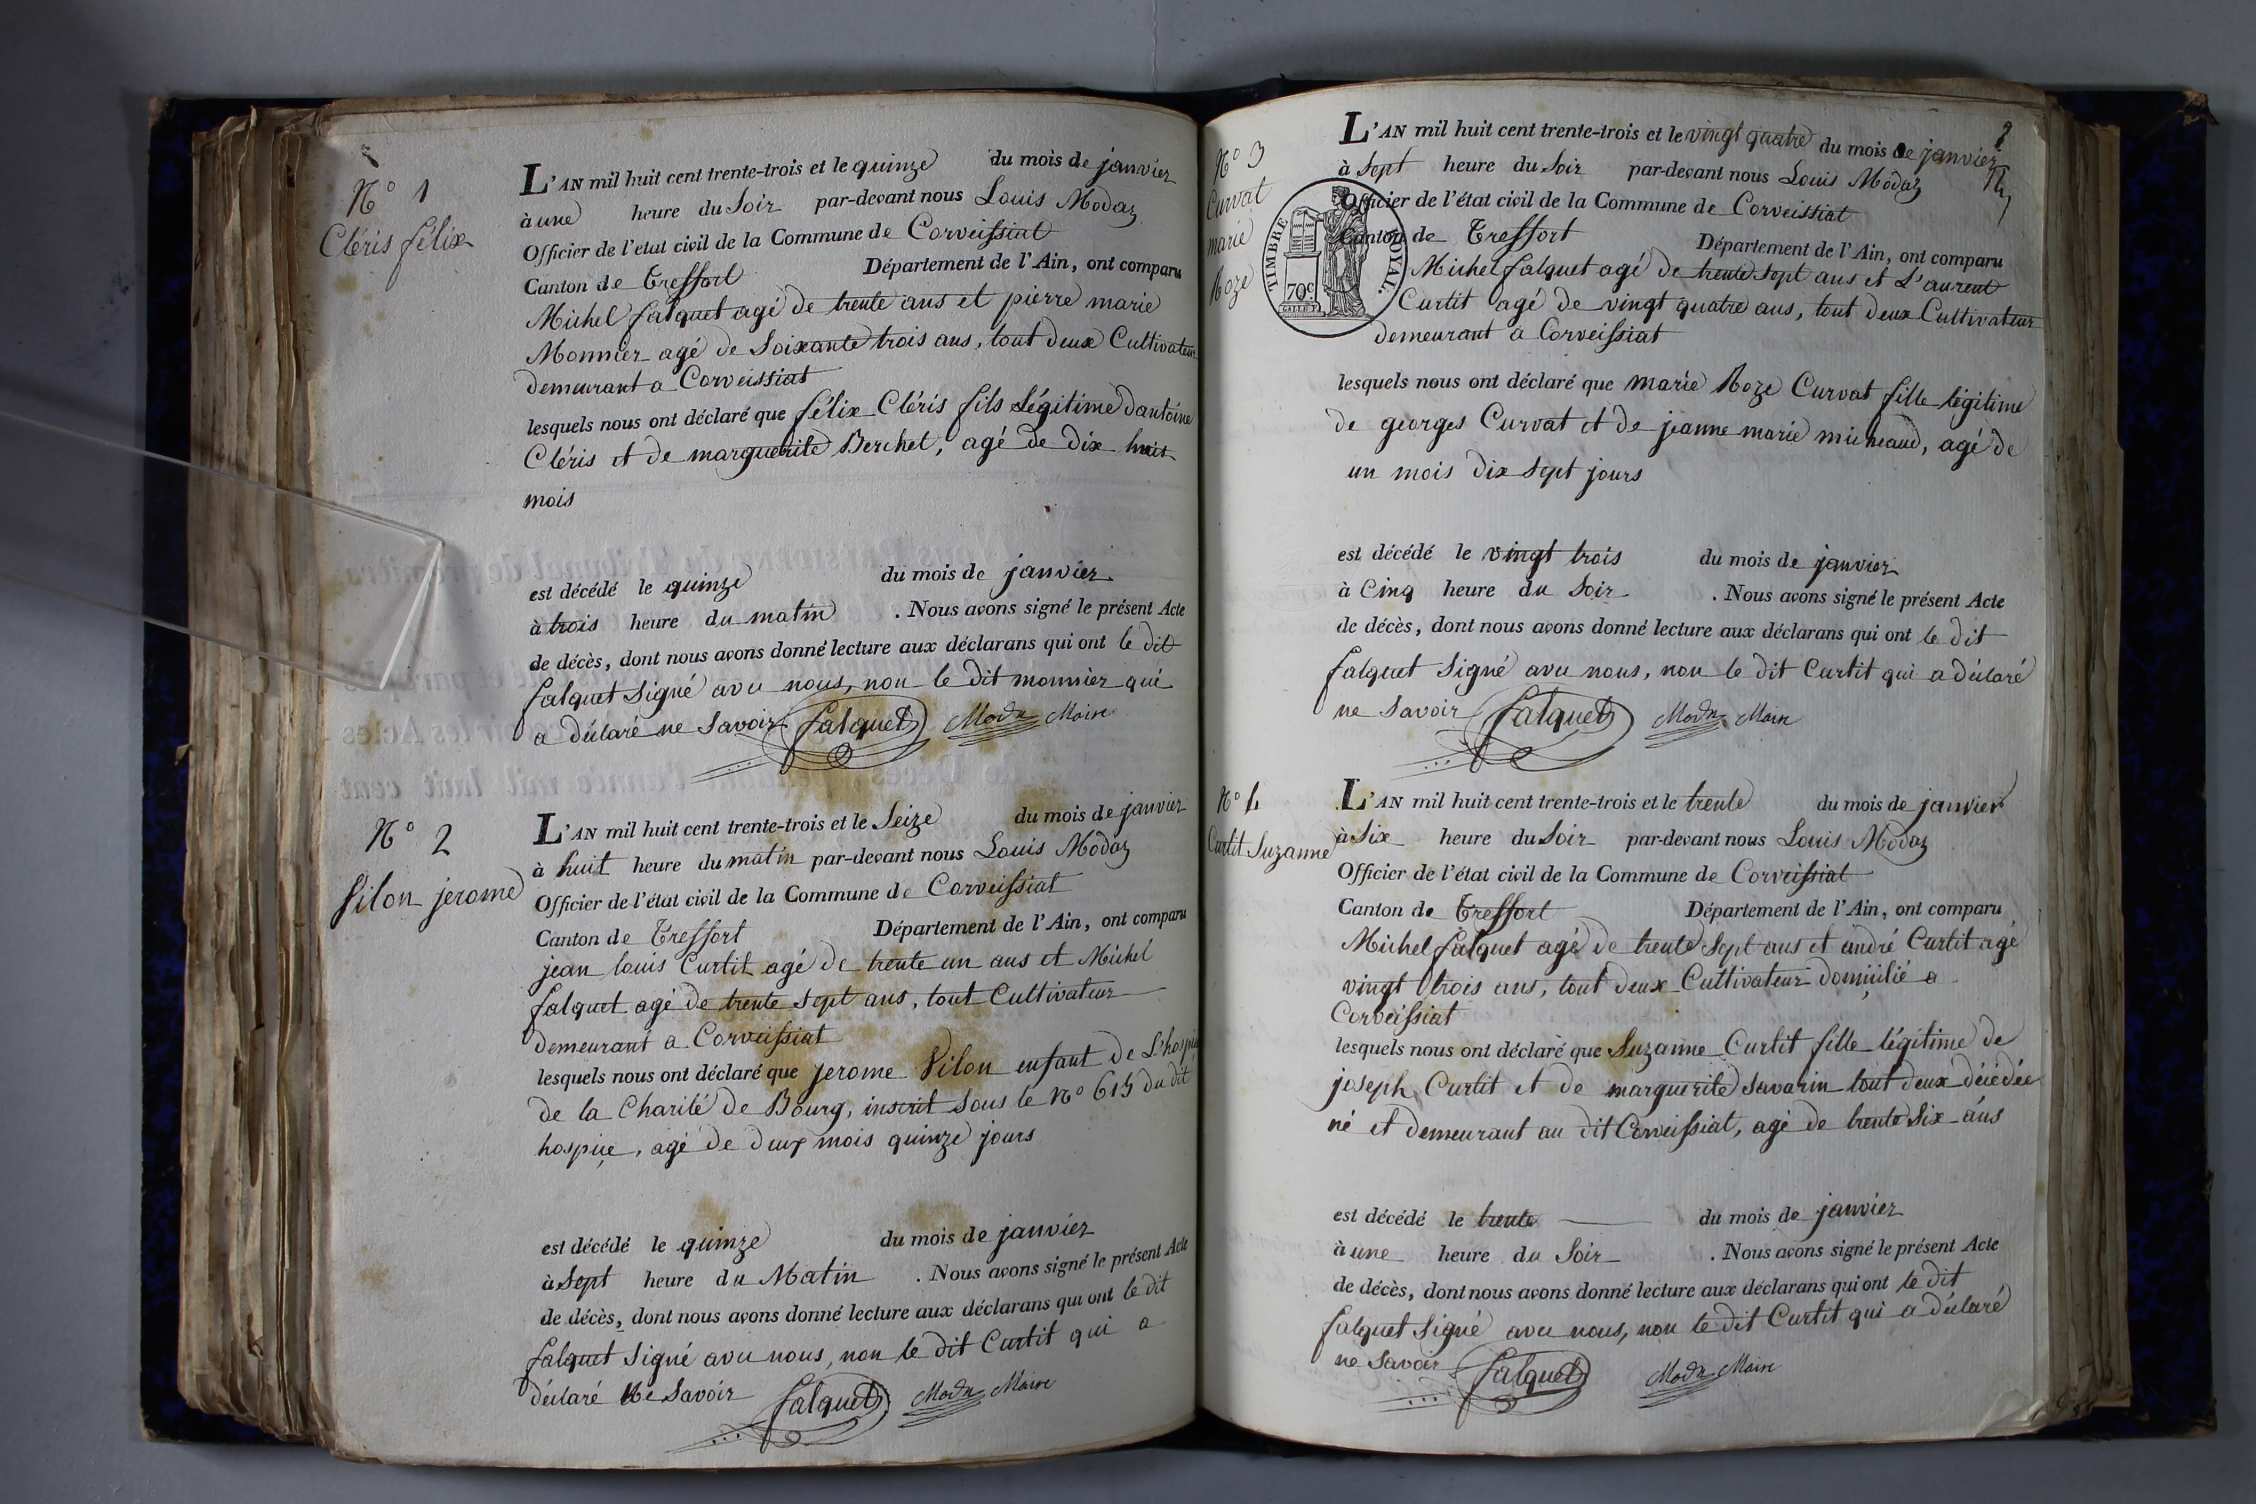 N° 1
Cléris félix
L'AN mil huit cent trente-trois et le quinze du mois de janvier
à une heure du Soir par-devant nous Louis Modaz
Officier de l'état civil de la Commune de Corveissiat
Canton de Treffort Département de l'Ain, ont comparu
Michel falquet agé de trente ans et pierre marie
Monnier agé de Soixante trois ans, tout deux Cultivateur
demeurant a Corveissiat
lesquels nous ont déclaré que félix Cléris fils Légitime dantoine
Cléris et de marguerite Berchet, agé de dix huit
mois
est décédé le quinze du mois de janvier
à trois heure du matin . Nous avons signé le présent Acte
de décès, dont nous avons donné lecture aux déclarans qui ont le dit
falquet Signé avec nous, non le dit monnier qui
a déclaré ne Savoir falquet Modaz Maire
N° 2
Vilon jerome
L'AN mil huit cent trente-trois et le Seize du mois de janvier
à huit heure du matin par-devant nous Louis Modaz
Officier de l'état civil de la Commune de Corveissiat
Canton de Treffort Département de l'Ain, ont comparu
jean louis Curtit agé de trente un ans et Michel
falquet agé de trente Sept ans, tout Cultivateur
demeurant a Corveissiat
lesquels nous ont déclaré que jerome Vilon enfant de L'hospice
de la Charité de Bourg, inscrit Sous le N° 615 du dit
hospice, agé de deux mois quinze jours
est décédé le quinze du mois de janvier
à Sept heure du Matin . Nous avons signé le présent Acte
de décès, dont nous avons donné lecture aux déclarans qui ont le dit
falquet Signé avec nous, non le dit Curtit qui a
déclaré Ne Savoir falquet Modaz Maire
2
N° 3
Curvat
marie
Roze
TIMBRE ROYAL.
70c
L'AN mil huit cent trente-trois et le vingt quatre du mois de janvier
à Sept heure du Soir par-devant nous Louis Modaz
Officier de l'état civil de la Commune de Corveissiat
Canton de Treffort Département de l'Ain, ont comparu
Michel falquet agé de trente Sept ans et L'aurent
Curtit agé de vingt quatre ans, tout deux Cultivateur
demeurant a Corveissiat
lesquels nous ont déclaré que marie Roze Curvat fille légitime
de georges Curvat et de jeanne marie micheaud, agé de
un mois dix Sept jours
est décédé le vingt trois du mois de janvier
à Cinq heure du Soir . Nous avons signé le présent Acte
de décès, dont nous avons donné lecture aux déclarans qui ont le dit
falquet Signé avec nous, non le dit Curtit qui a déclaré
ne Savoir falquet Modaz Maire
N° 4
Curtit Suzanne
L'AN mil huit cent trente-trois et le trente du mois de janvier
à Six heure du Soir par-devant nous Louis Modaz
Officier de l'état civil de la Commune de Corveissiat
Canton de Treffort Département de l'Ain, ont comparu
Michel falquet agé de trente Sept ans et andré Curtit agé
vingt trois ans, tout deux Cultivateur domicilié a
Corveissiat
lesquels nous ont déclaré que Suzanne Curtit fille légitime de
joseph Curtit et de marguerite Savarin tout deux décédée
né et demeurant au dit Corveissiat, agé de trente Six ans
est décédé le trente du mois de janvier
à une heure du Soir . Nous avons signé le présent Acte
de décès, dont nous avons donné lecture aux déclarans qui ont le dit
falquet Signé avec nous, non le dit Curtit qui a déclaré
ne Savoir falquet Modaz Maire